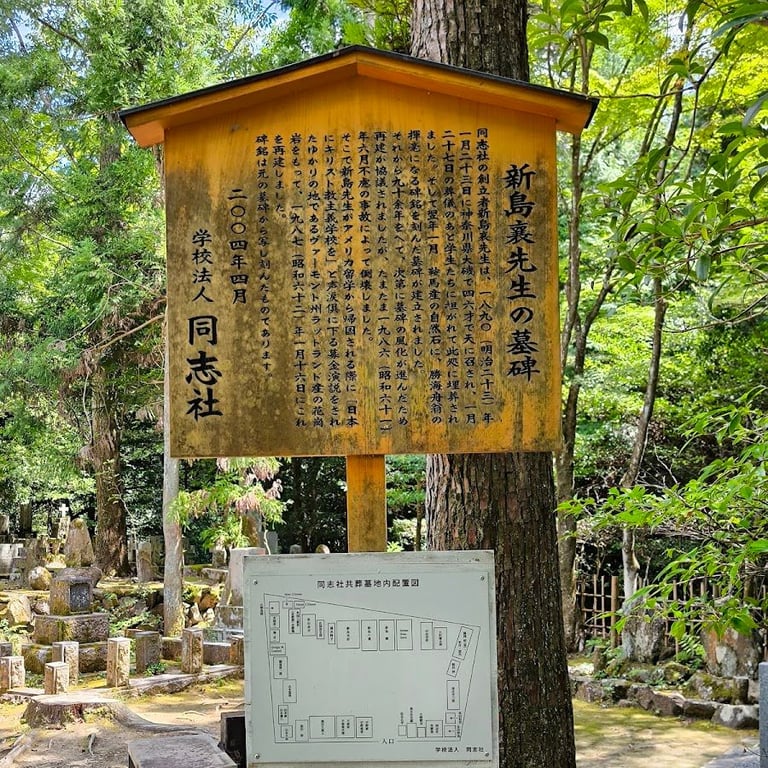 新島襄先生の墓碑
同志社の創立者新島襄先生は、一八九〇(明治二十三)年
一月二十三日に神奈川県大磯で四六才で天に召され、一月
二十七日の葬儀のあと学生たちに担がれて此処に埋葬され
ました。そして翌年一月、鞍馬産の自然石に、勝海舟翁の
揮毫になる碑銘を刻んだ墓碑が建立されました。
それから九十余年をへて、次第に墓碑の風化が進んだため
再建が協議されましたが、たまたま一九八六(昭和六十一)
年六月不慮の事故によって倒壊しました。
そこで新島先生がアメリカ留学から帰国される際に「日本
にキリスト教主義学校を」と声涙倶に下る募金演説をされ
たゆかりの地であるヴァーモント州ラットランド産の花崗
岩をもって、一九八七(昭和六十二)年一月十六日にこれ
を再建しました。
碑銘は元の墓碑から写し刻んだものであります。
二〇〇四年四月
学校法人 同志社
同志社共葬墓地内配置図
入口
学校法人 同志社